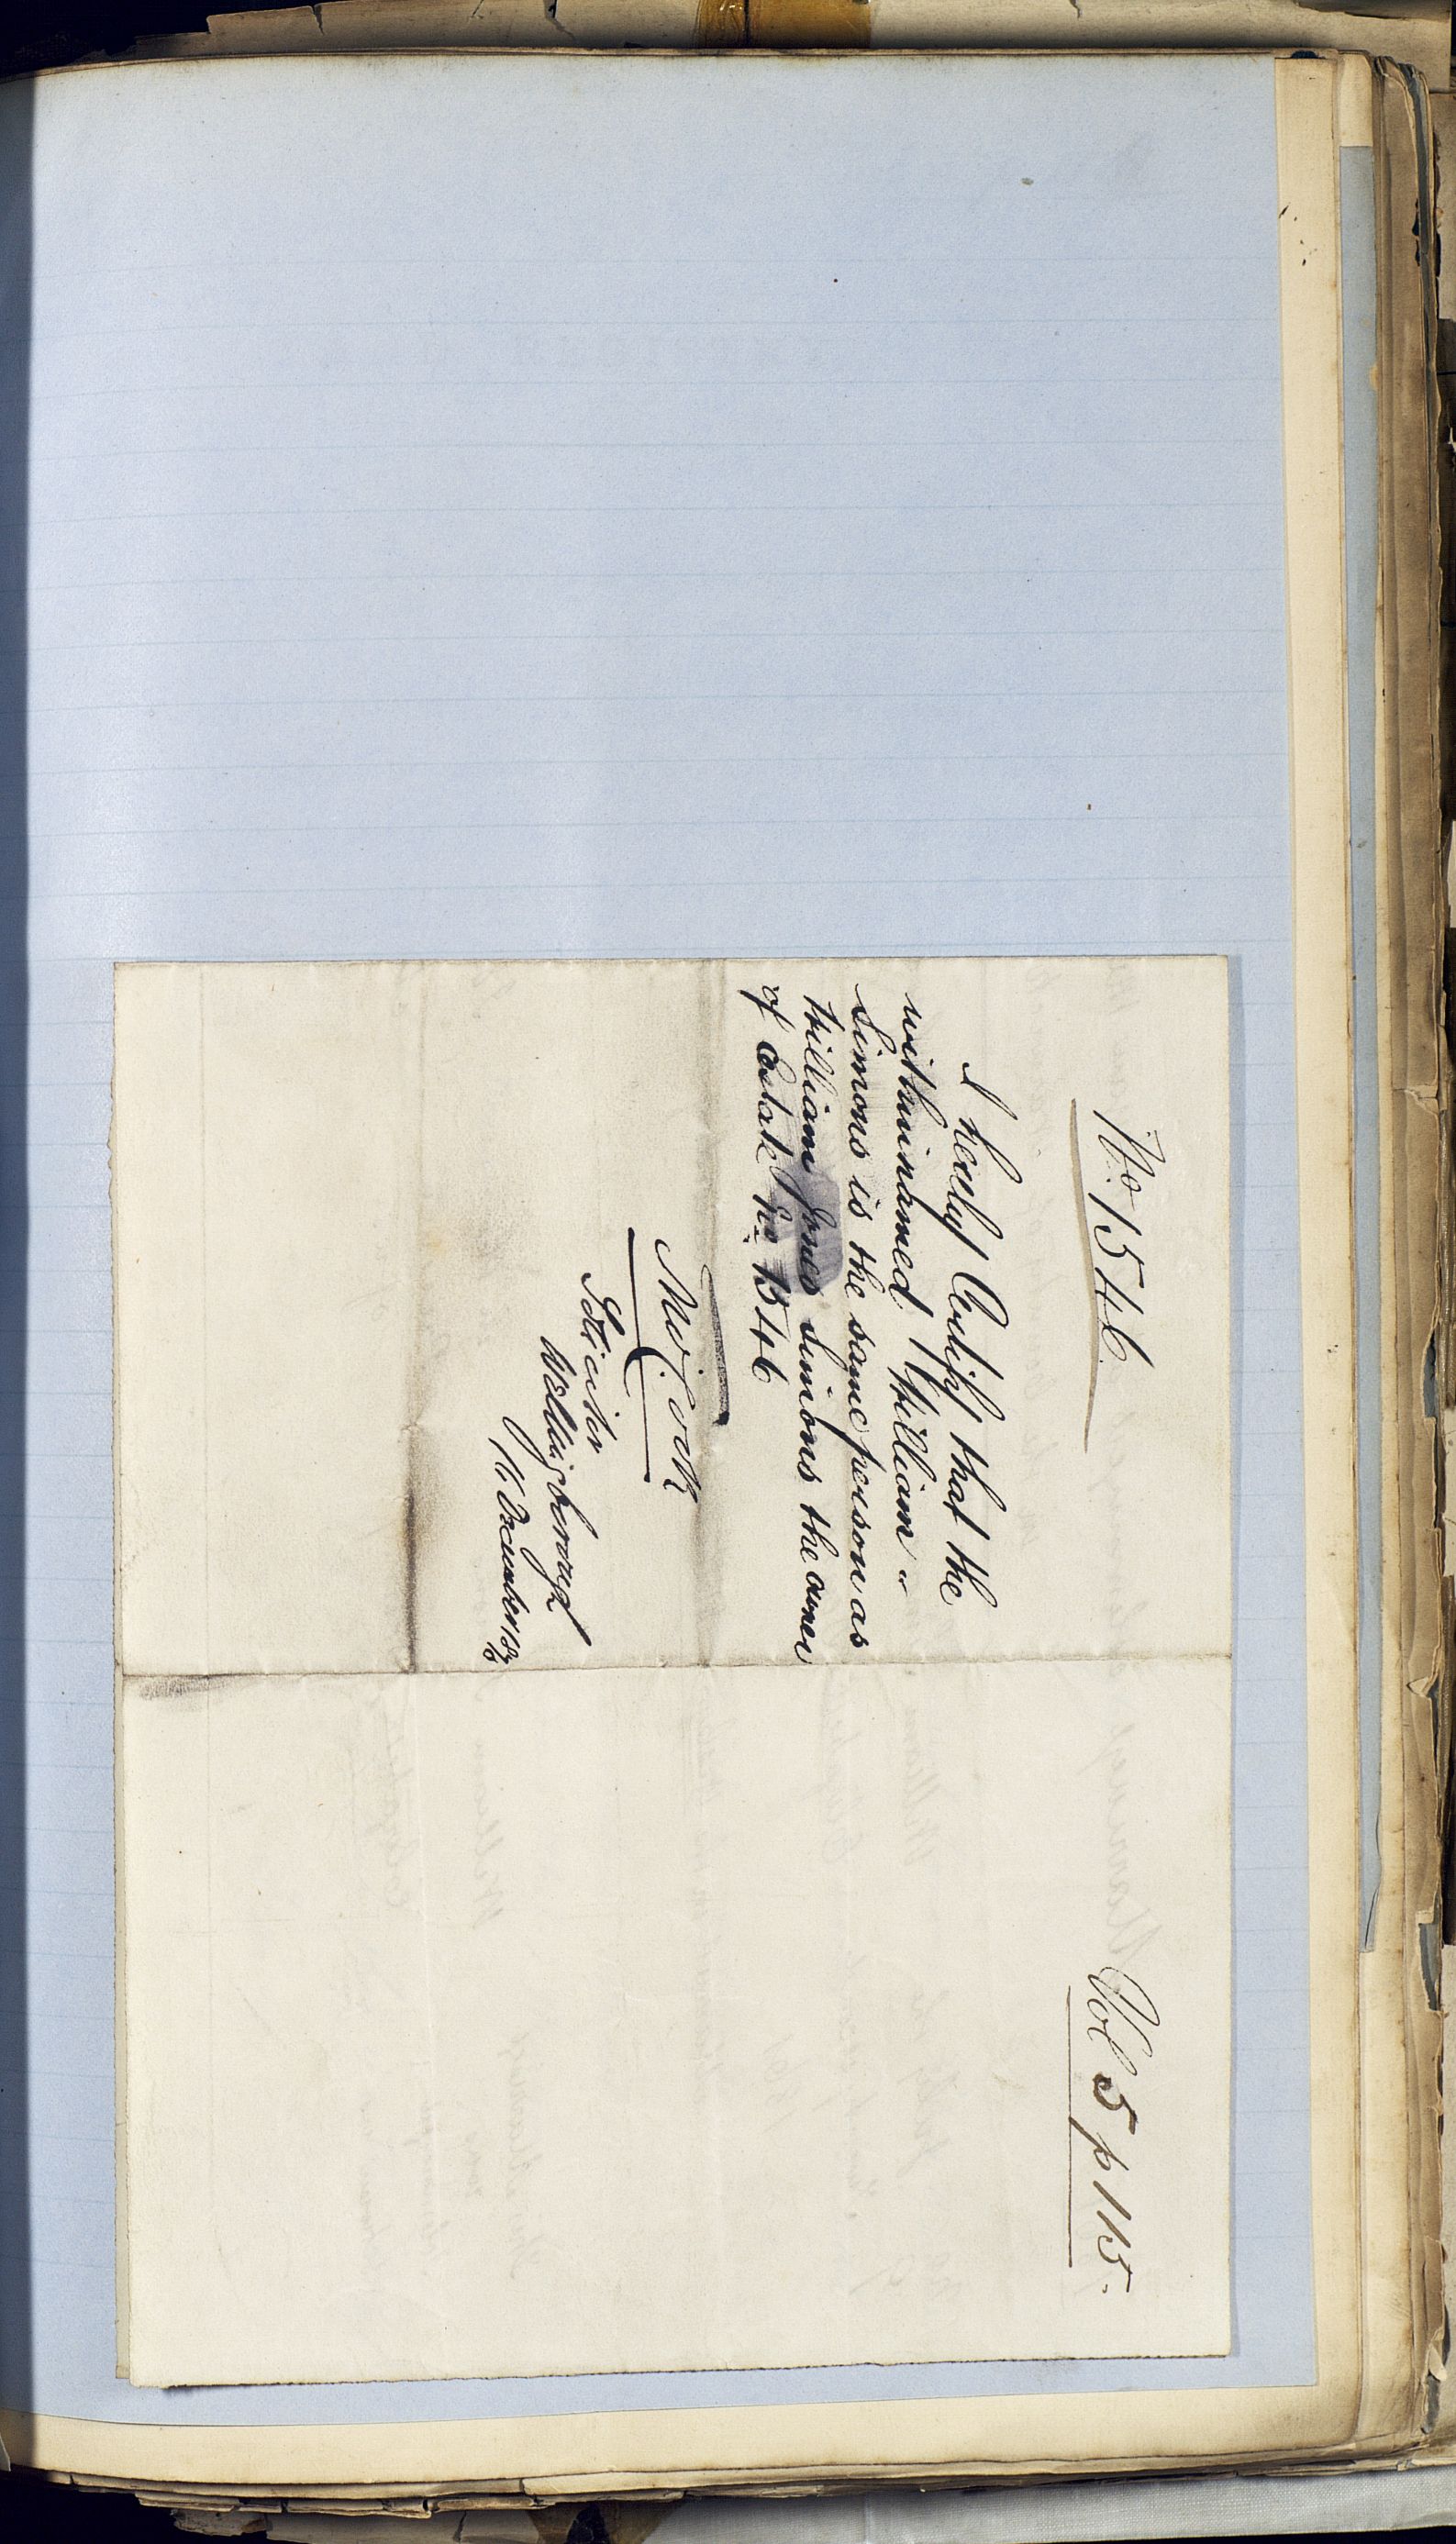 No. 1546.
I hereby Certify that the
within named William
Simons is the same person as
William Jones Simons the owner
of Estate No 1546
Solicitor
Wellingborough
December 187
Vol 5 p 115.